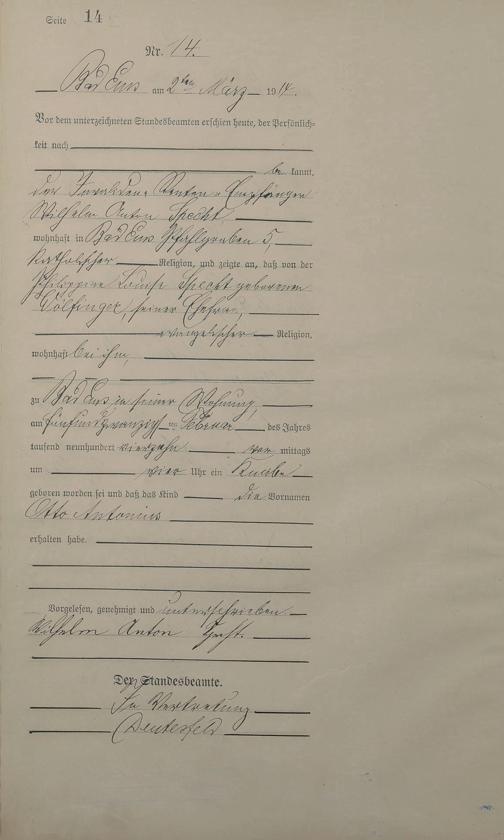 Seite 14
Nr. 14.
Bad Ems am 2ten März 1914.
Vor dem unterzeichneten Standesbeamten erschien heute, der Persönlich-
keit nach
be kannt,
der Invaliden-Renten-Empfänger
Wilhelm Anton Specht
wohnhaft in Bad Ems Pfahlgraben 5,
katholischer Religion, und zeigte an, daß von der
Philippine Louise Specht geborenen
seiner Ehefrau,
evangelischer Religion,
wohnhaft bei ihm,
zu Bad Ems in seiner Wohnung,
am fünfundzwanzigsten Februar des Jahres
tausend neunhundert vierzehn vor mittags
um vier Uhr ein Knabe
geboren worden sei und daß das Kind die Vornamen
Otto Antonius
erhalten habe.
Vorgelesen, genehmigt und unterschrieben
Wilhelm Anton Specht.
Der Standesbeamte.
In Vertretung